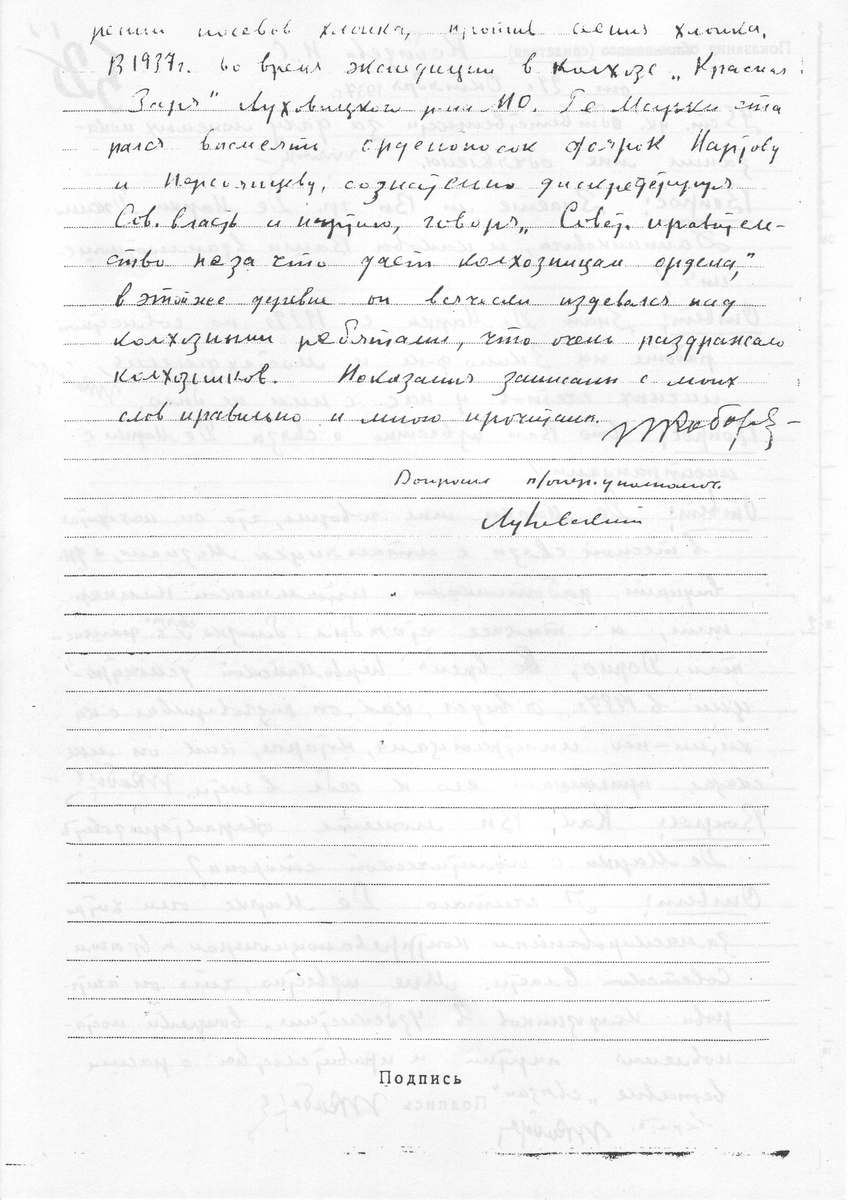 рении посевов хлопка, против сеяния хлопка.
В 1937г. во время экспедиции в колхозе „Красная
Заря" Луховицкого р-на МО. Де Марки ста
рался высмеять орденоносок доярок
и сознательно дискредетируя
Сов. власть и партию, говоря „Совет. правитель-
ство не за что дает колхозницам ордена,"
в этой же деревне он всячески издевался над
колхозными ребятами, что очень раздражало
колхозников. Показания записаны с моих
слов правильно и мною прочитаны.
Допросил п/опер. уполномоч.
Подпись